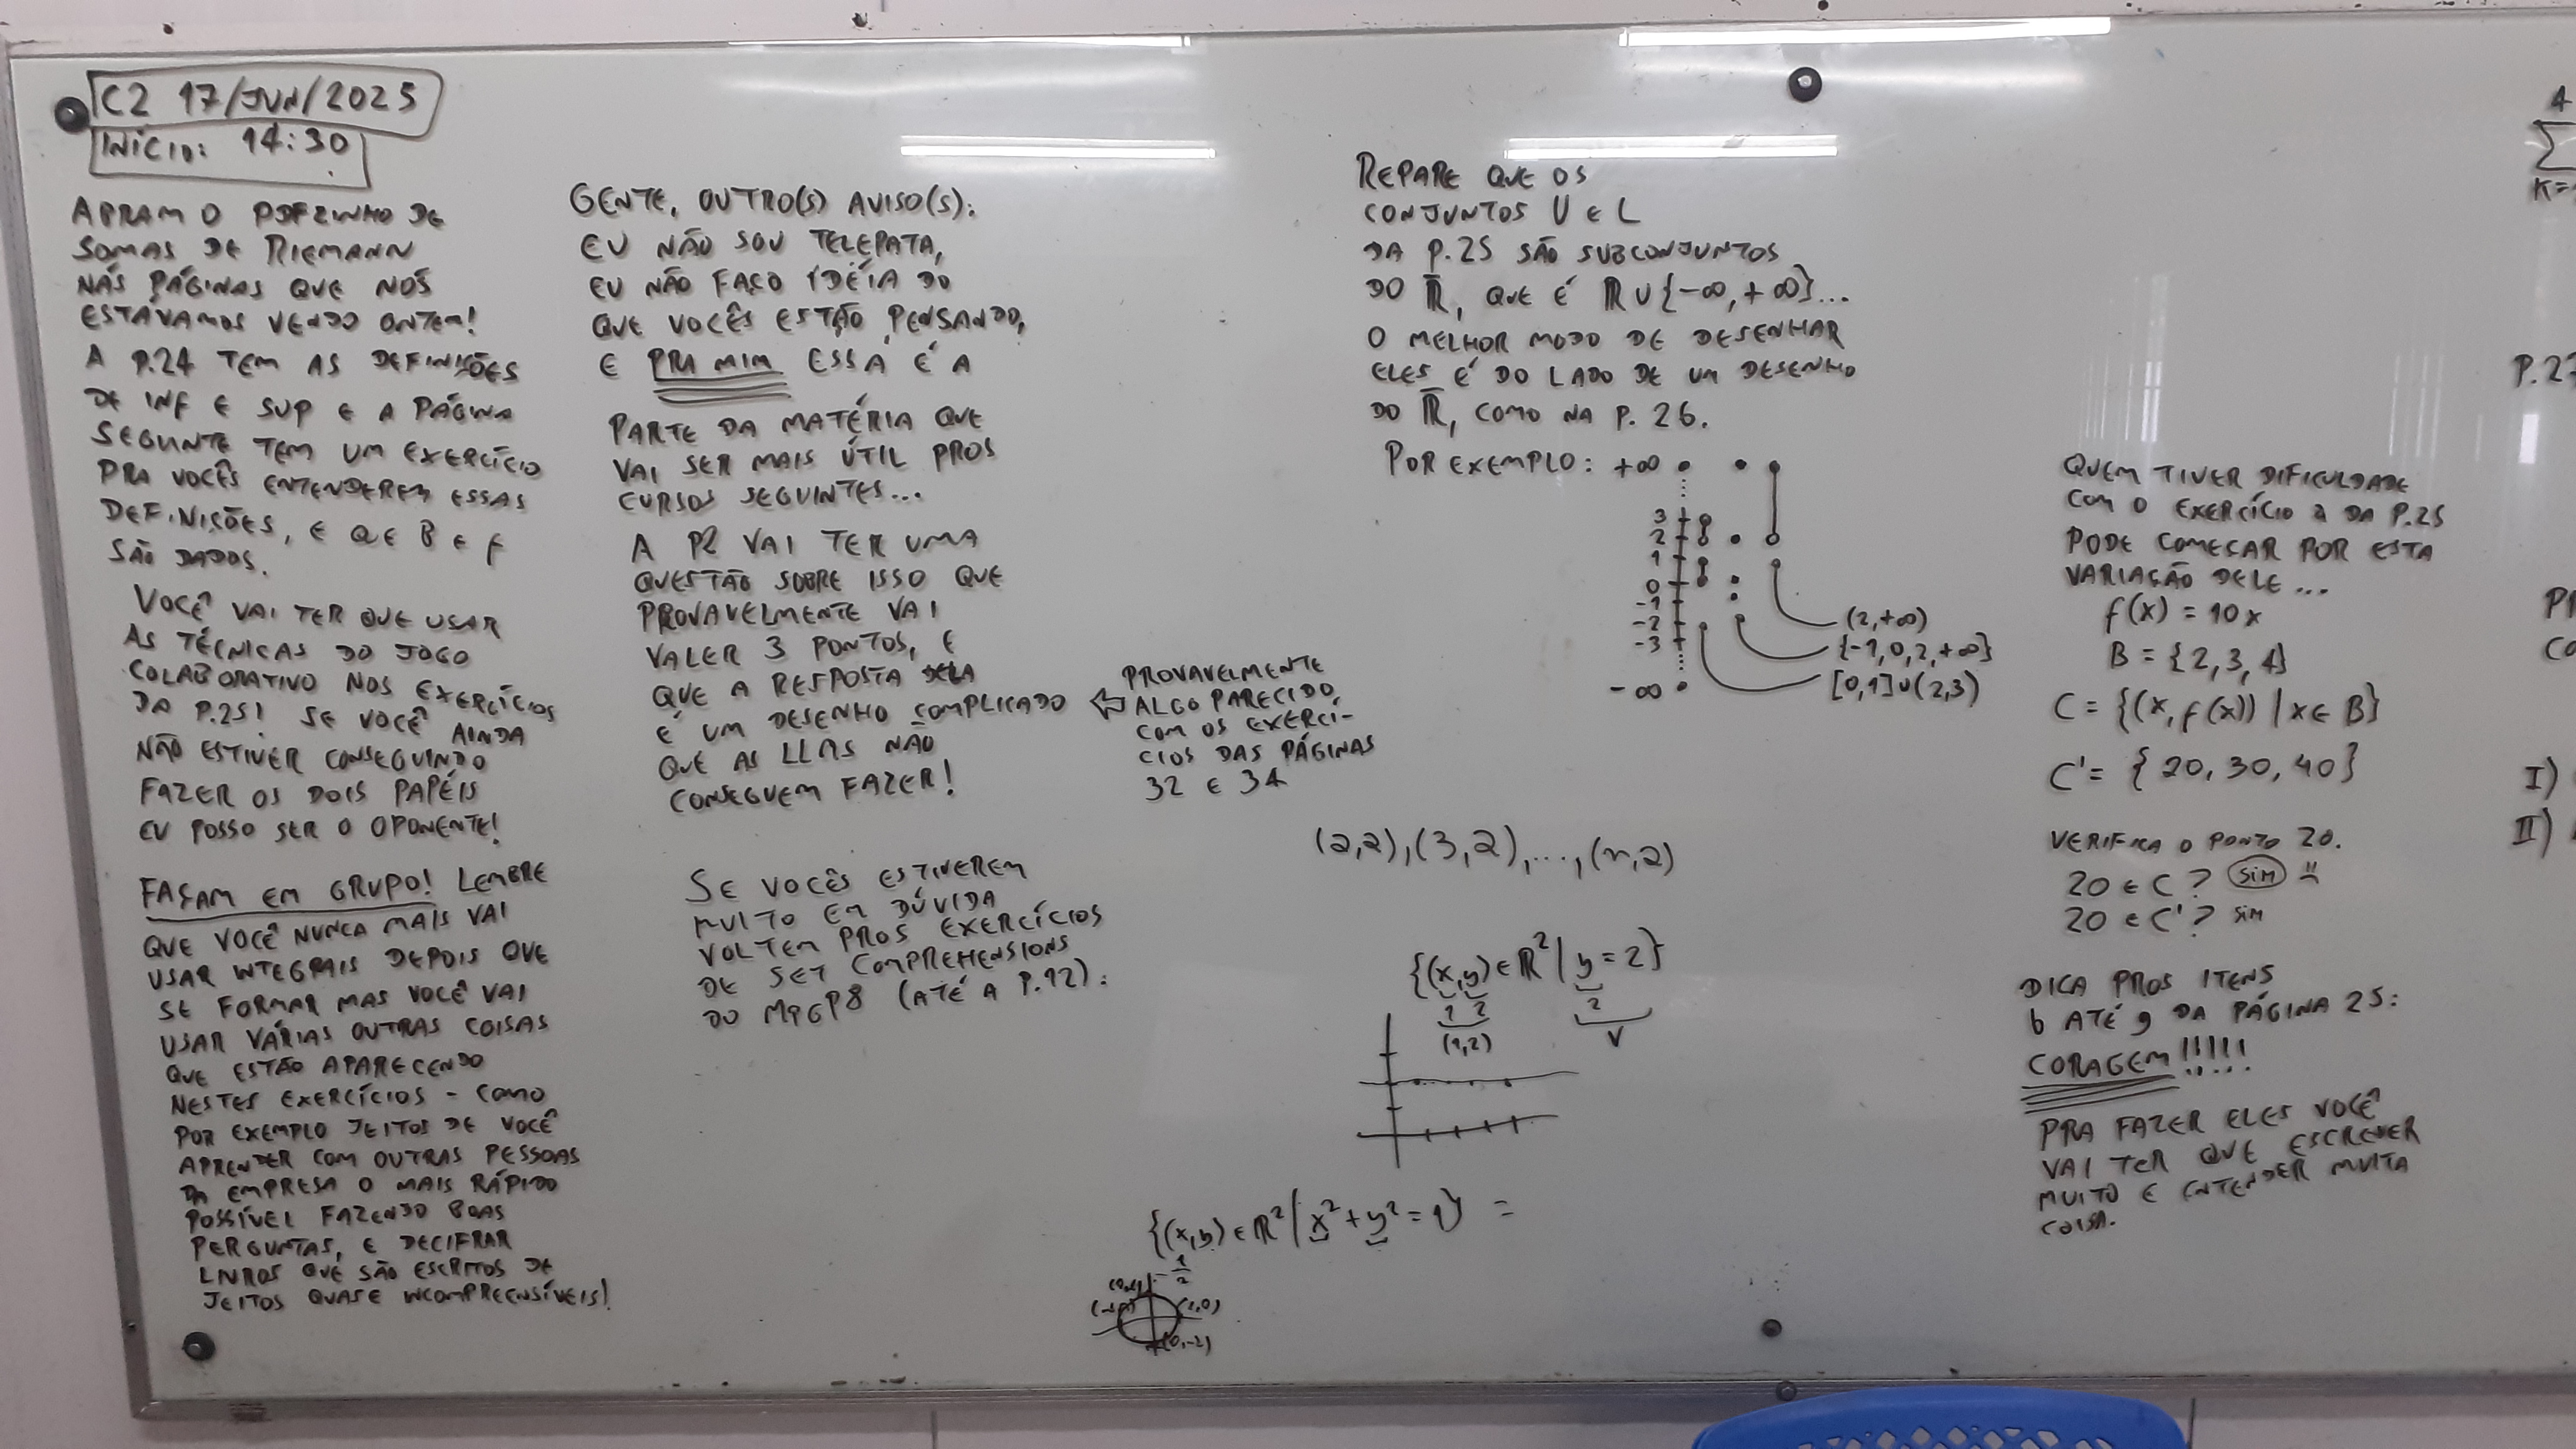 C2 17/JUN/2025
INÍCIO: 14:30
ABRAM O PDFZINHO DE
SOMAS DE RIEMANN
NAS PÁGINAS QUE NÓS
ESTÁVAMOS VENDO ONTEM!
A P.24 TEM AS DEFINIÇÕES
DE INF E SUP E A PÁGINA
SEGUINTE TEM UM EXERCÍCIO
PRA VOCÊS ENTENDEREM ESSAS
DEFINIÇÕES, E QE B E f
SÃO DADOS.
VOCÊ VAI TER QUE USAR
AS TÉCNICAS DO JOGO
COLABORATIVO NOS EXERCÍCIOS
DA P.25! SE VOCÊ AINDA
NÃO ESTIVER CONSEGUINDO
FAZER OS DOIS PAPÉIS
EU POSSO SER O OPONENTE!
FAÇAM EM GRUPO! LEMBRE
QUE VOCÊ NUNCA MAIS VAI
USAR INTEGRAIS DEPOIS QUE
SE FORMAR MAS VOCÊ VAI
USAR VÁRIAS OUTRAS COISAS
QUE ESTÃO APARECENDO
NESTES EXERCÍCIOS - COMO
POR EXEMPLO JEITOS DE VOCÊ
APRENDER COM OUTRAS PESSOAS
DA EMPRESA O MAIS RÁPIDO
POSSÍVEL FAZENDO BOAS
PERGUNTAS, E DECIFRAR
LIVROS QUE SÃO ESCRITOS DE
JEITOS QUASE INCOMPREENSÍVEIS!
GENTE, OUTRO(S) AVISO(S):
EU NÃO SOU TELEPATA,
EU NÃO FAÇO IDÉIA DO
QUE VOCÊS ESTÃO PENSANDO,
E PRA MIM ESSA É A
PARTE DA MATÉRIA QUE
VAI SER MAIS ÚTIL PROS
CURSOS SEGUINTES...
A P2 VAI TER UMA
QUESTÃO SOBRE ISSO QUE
PROVAVELMENTE VAI
VALER 3 PONTOS, E
QUE A RESPOSTA DELA
É UM DESENHO COMPLICADO
QUE AS LLMS NÃO
CONSEGUEM FAZER!
⇐ PROVAVELMENTE
ALGO PARECIDO
COM OS EXERCÍ-
CIOS DAS PÁGINAS
32 E 34
SE VOCÊS ESTIVEREM
MUITO EM DÚVIDA
VOLTEM PROS EXERCÍCIOS
DE SET COMPREHENSIONS
DO MPGP8 (ATÉ A P.12):
REPARE QUE OS
CONJUNTOS U E L
DA P.25 SÃO SUBCONJUNTOS
DO R̅, QUE É ℝ∪{-∞,+∞}...
O MELHOR MODO DE DESENHAR
ELES É DO LADO DE UM DESENHO
DO R̅, COMO NA P. 26.
POR EXEMPLO: +∞
3
2
1
0
-1
-2
-3
-∞
(2,+∞)
{-1,0,2,+∞}
[0,1]∪(2,3)
(2,2),(3,2),...,(n,2)
{(x,y)∈ℝ²|y=2}
1 2 2
(1,2) V
{(x,y)∈ℝ²|x²+y²=1} =
(1,0)
QUEM TIVER DIFICULDADE
COM O EXERCÍCIO a DA P.25
PODE COMEÇAR POR ESTA
VARIAÇÃO DELE...
f(x) = 10x
B = {2,3,4}
C = {(x,f(x)) | x∈B}
C' = {20,30,40}
VERIFICA O PONTO 20.
20 ∈ C? SIM
20 ∈ C'? SIM
DICA PROS ITENS
b ATÉ g DA PÁGINA 25:
CORAGEM!!!!!
PRA FAZER ELES VOCÊ
VAI TER QUE ESCREVER
MUITO E ENTENDER MUITA
COISA.
4
∑
K=
P.27
I)
II)